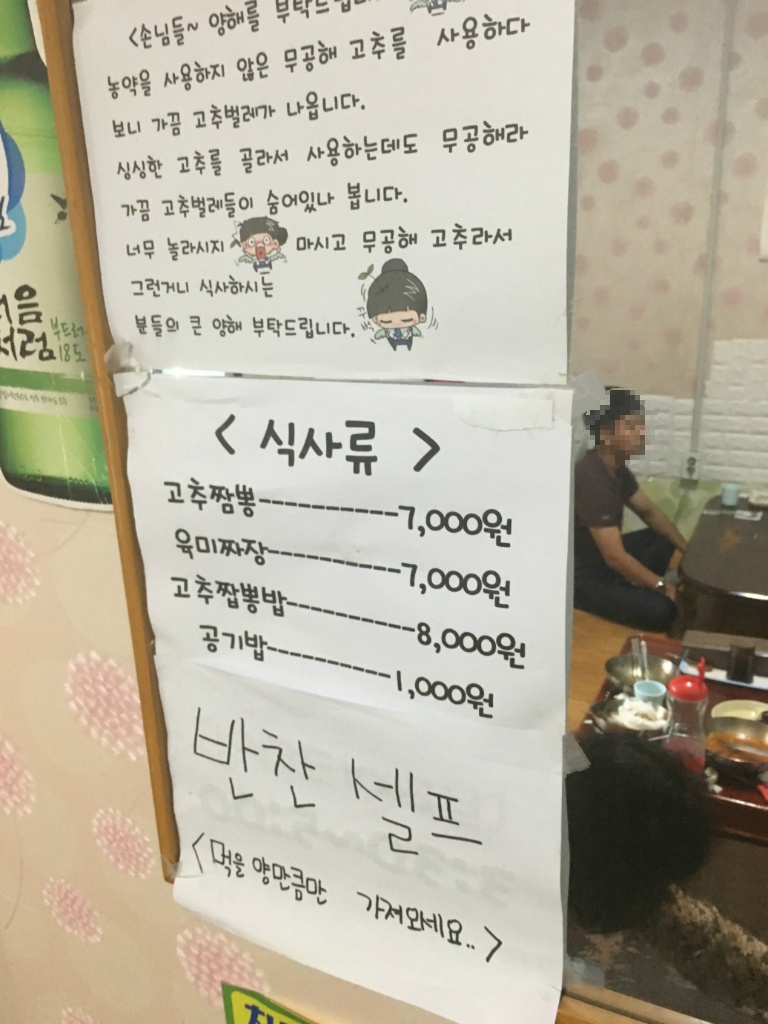 <손님들~ 양해를 부탁드립니다.
농약을 사용하지 않은 무공해 고추를 사용하다
보니 가끔 고추벌레가 나옵니다.
싱싱한 고추를 골라서 사용하는데도 무공해라
가끔 고추벌레들이 숨어있나 봅니다.
너무 놀라시지 마시고 무공해 고추라서
그런거니 식사하시는
분들의 큰 양해 부탁드립니다.
꾸벅
처음
처럼
부드러
18도
< 식사류 >
고추짬뽕----------7,000원
육미짜장----------7,000원
고추짭뽕밥----------8,000원
공기밥----------1,000원
반찬 셀프
<먹을 양만큼만 가져와세요..>